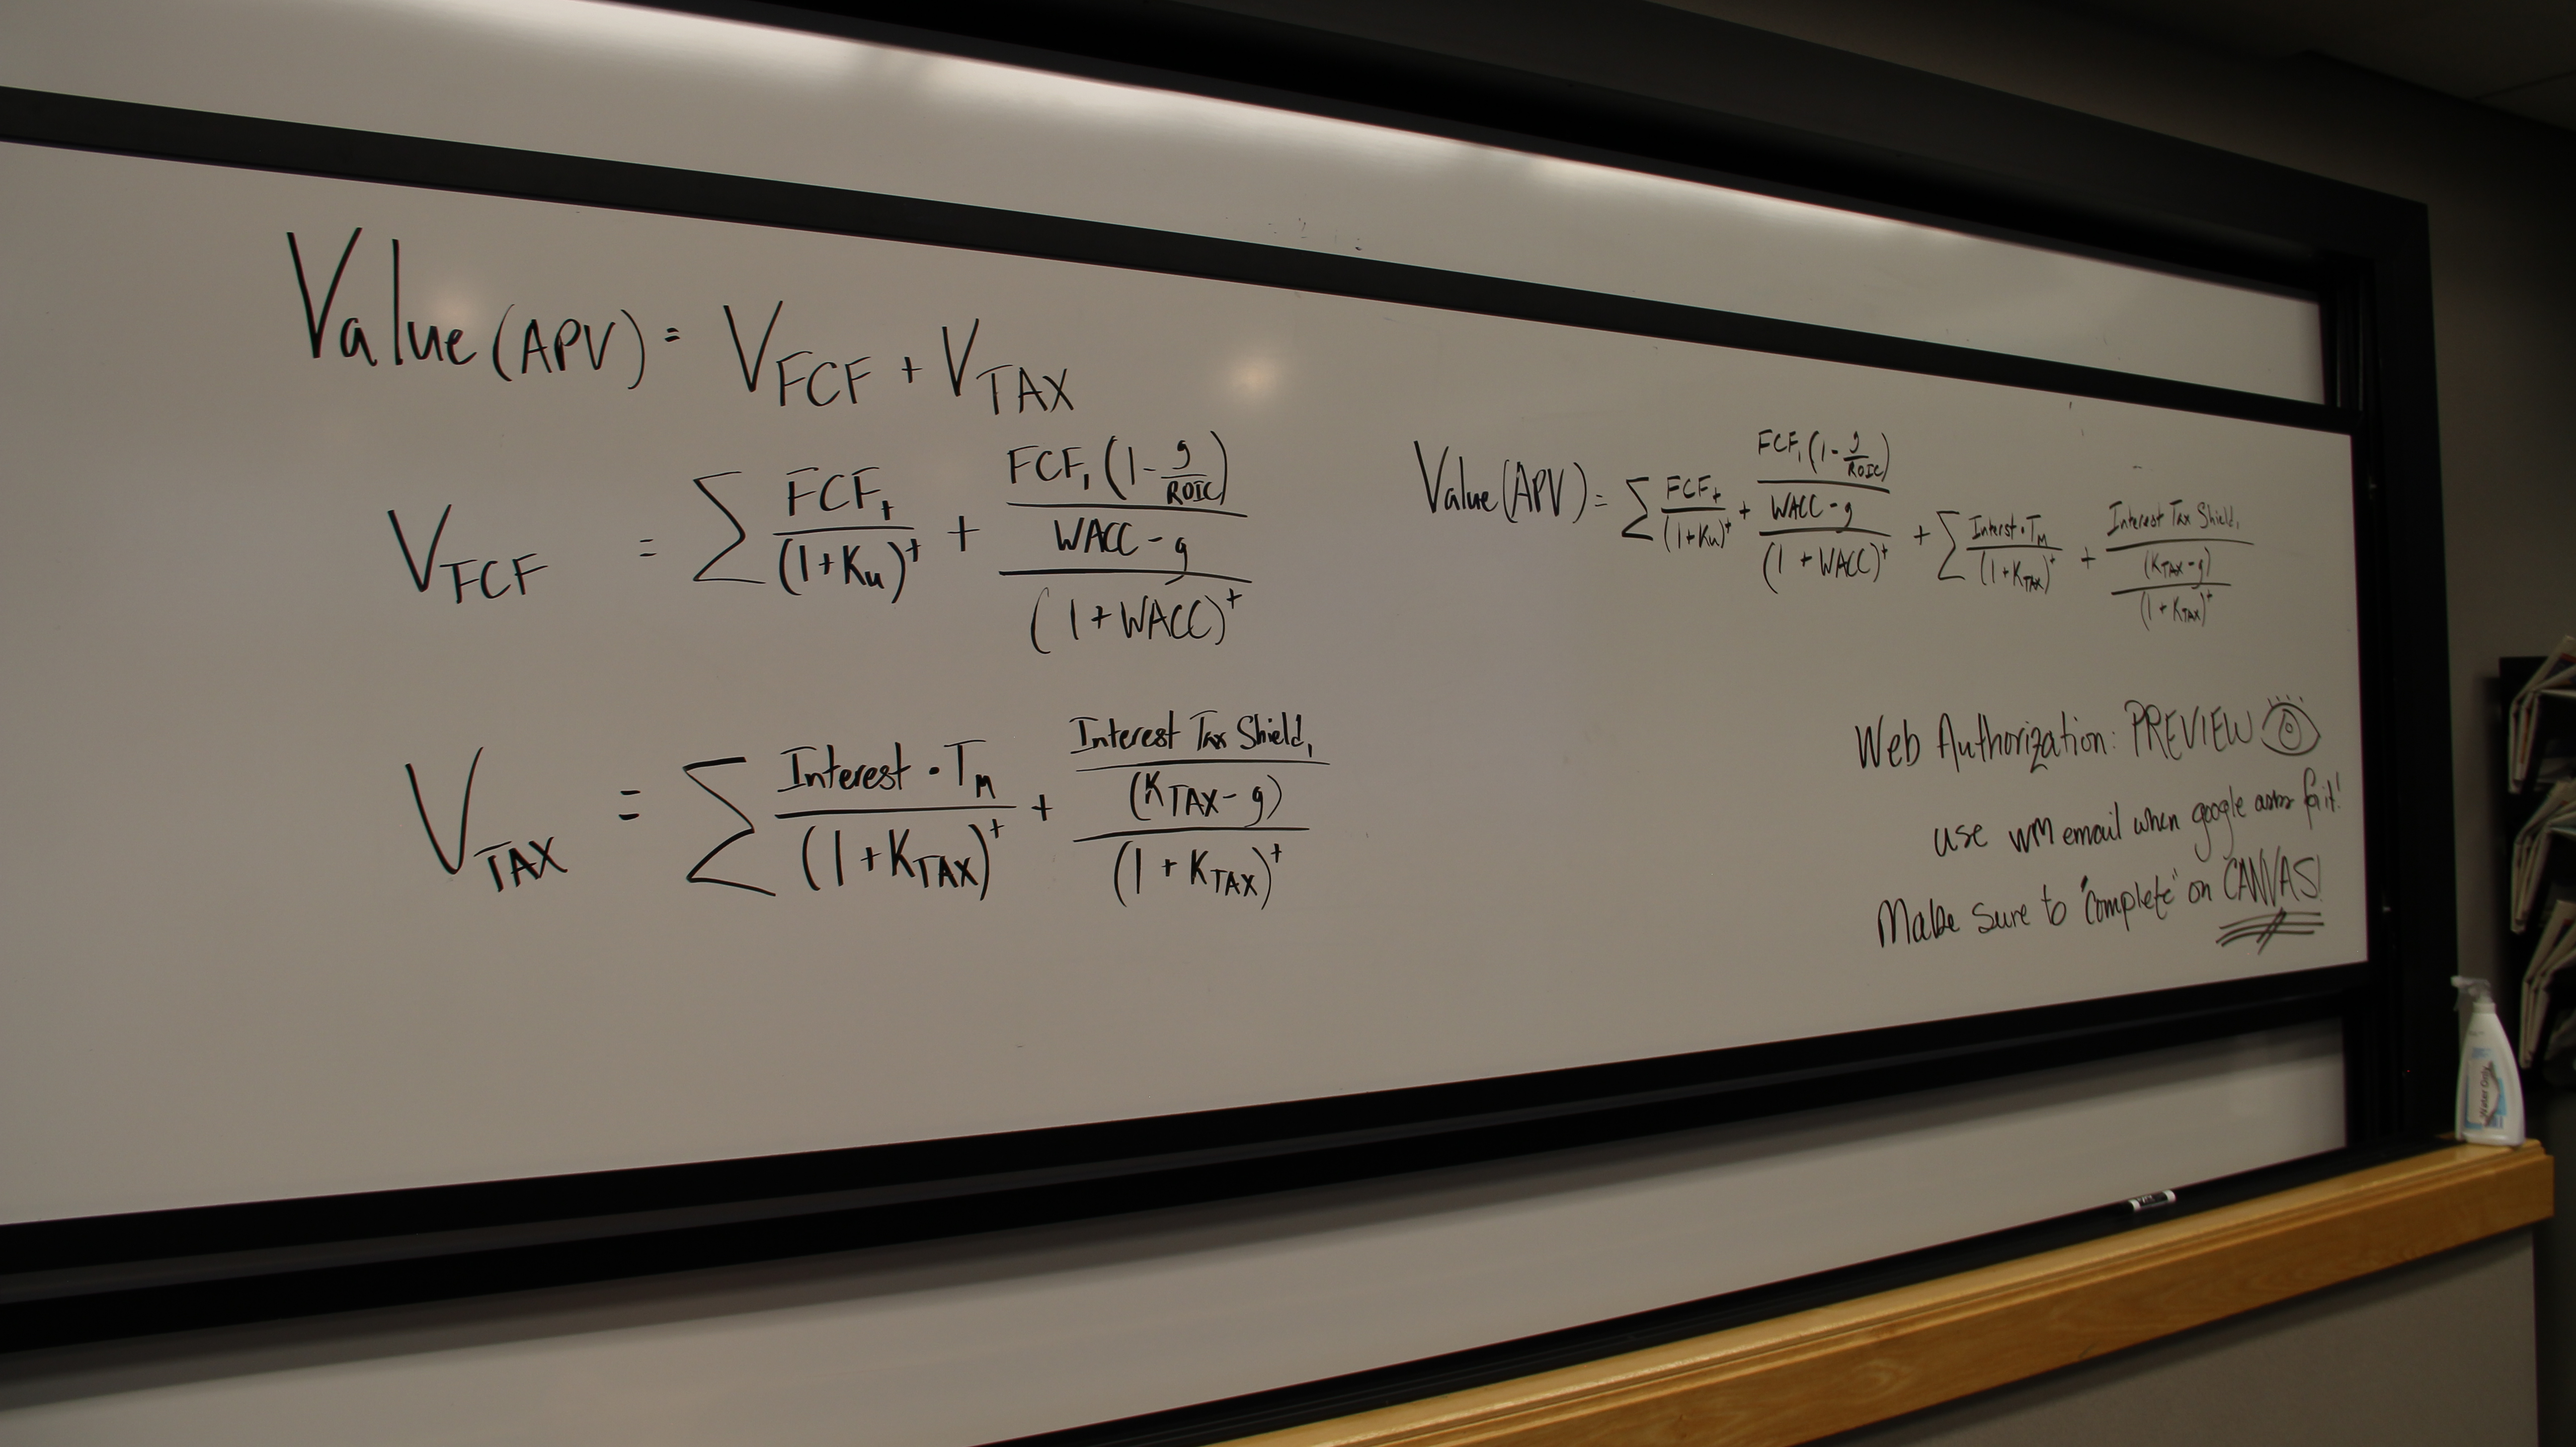 Value (APV) = V_FCF + V_TAX
V_FCF = Σ FCF_t / (1+K_u)^t + [FCF_1 (1 - g/ROIC) / (WACC - g)] / (1 + WACC)^t
V_TAX = Σ Interest · T_M / (1+K_TAX)^t + [Interest Tax Shield_1 / (K_TAX - g)] / (1 + K_TAX)^t
Value (APV) = Σ FCF_t / (1+K_u)^t + [FCF_1 (1 - g/ROIC) / (WACC - g)] / (1 + WACC)^t + Σ Interst · T_M / (1+K_TAX)^t + [Interest Tax Shield_1 / (K_TAX - g)] / (1 + K_TAX)^t
Web Authorization: PREVIEW
use WM email when google for it!
Make sure to "complete" on CANVAS!
Water Only